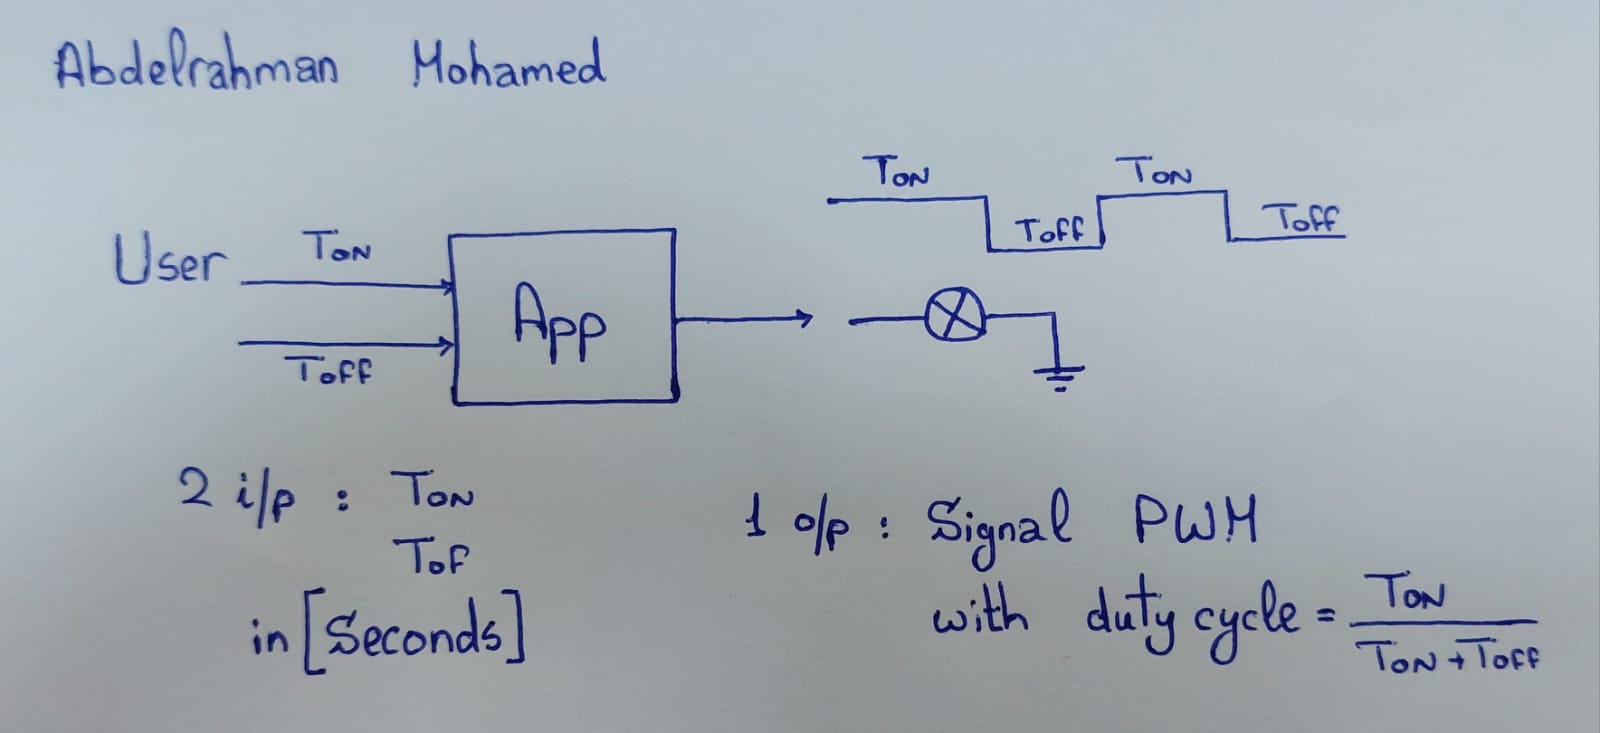 Abdelrahman Mohamed
TON
TON
Toff
Toff
User
TON
Toff
App
2 i/p : TON
Tof
in [Seconds]
1 o/p : Signal PWM
with duty cycle = TON
TON + Toff